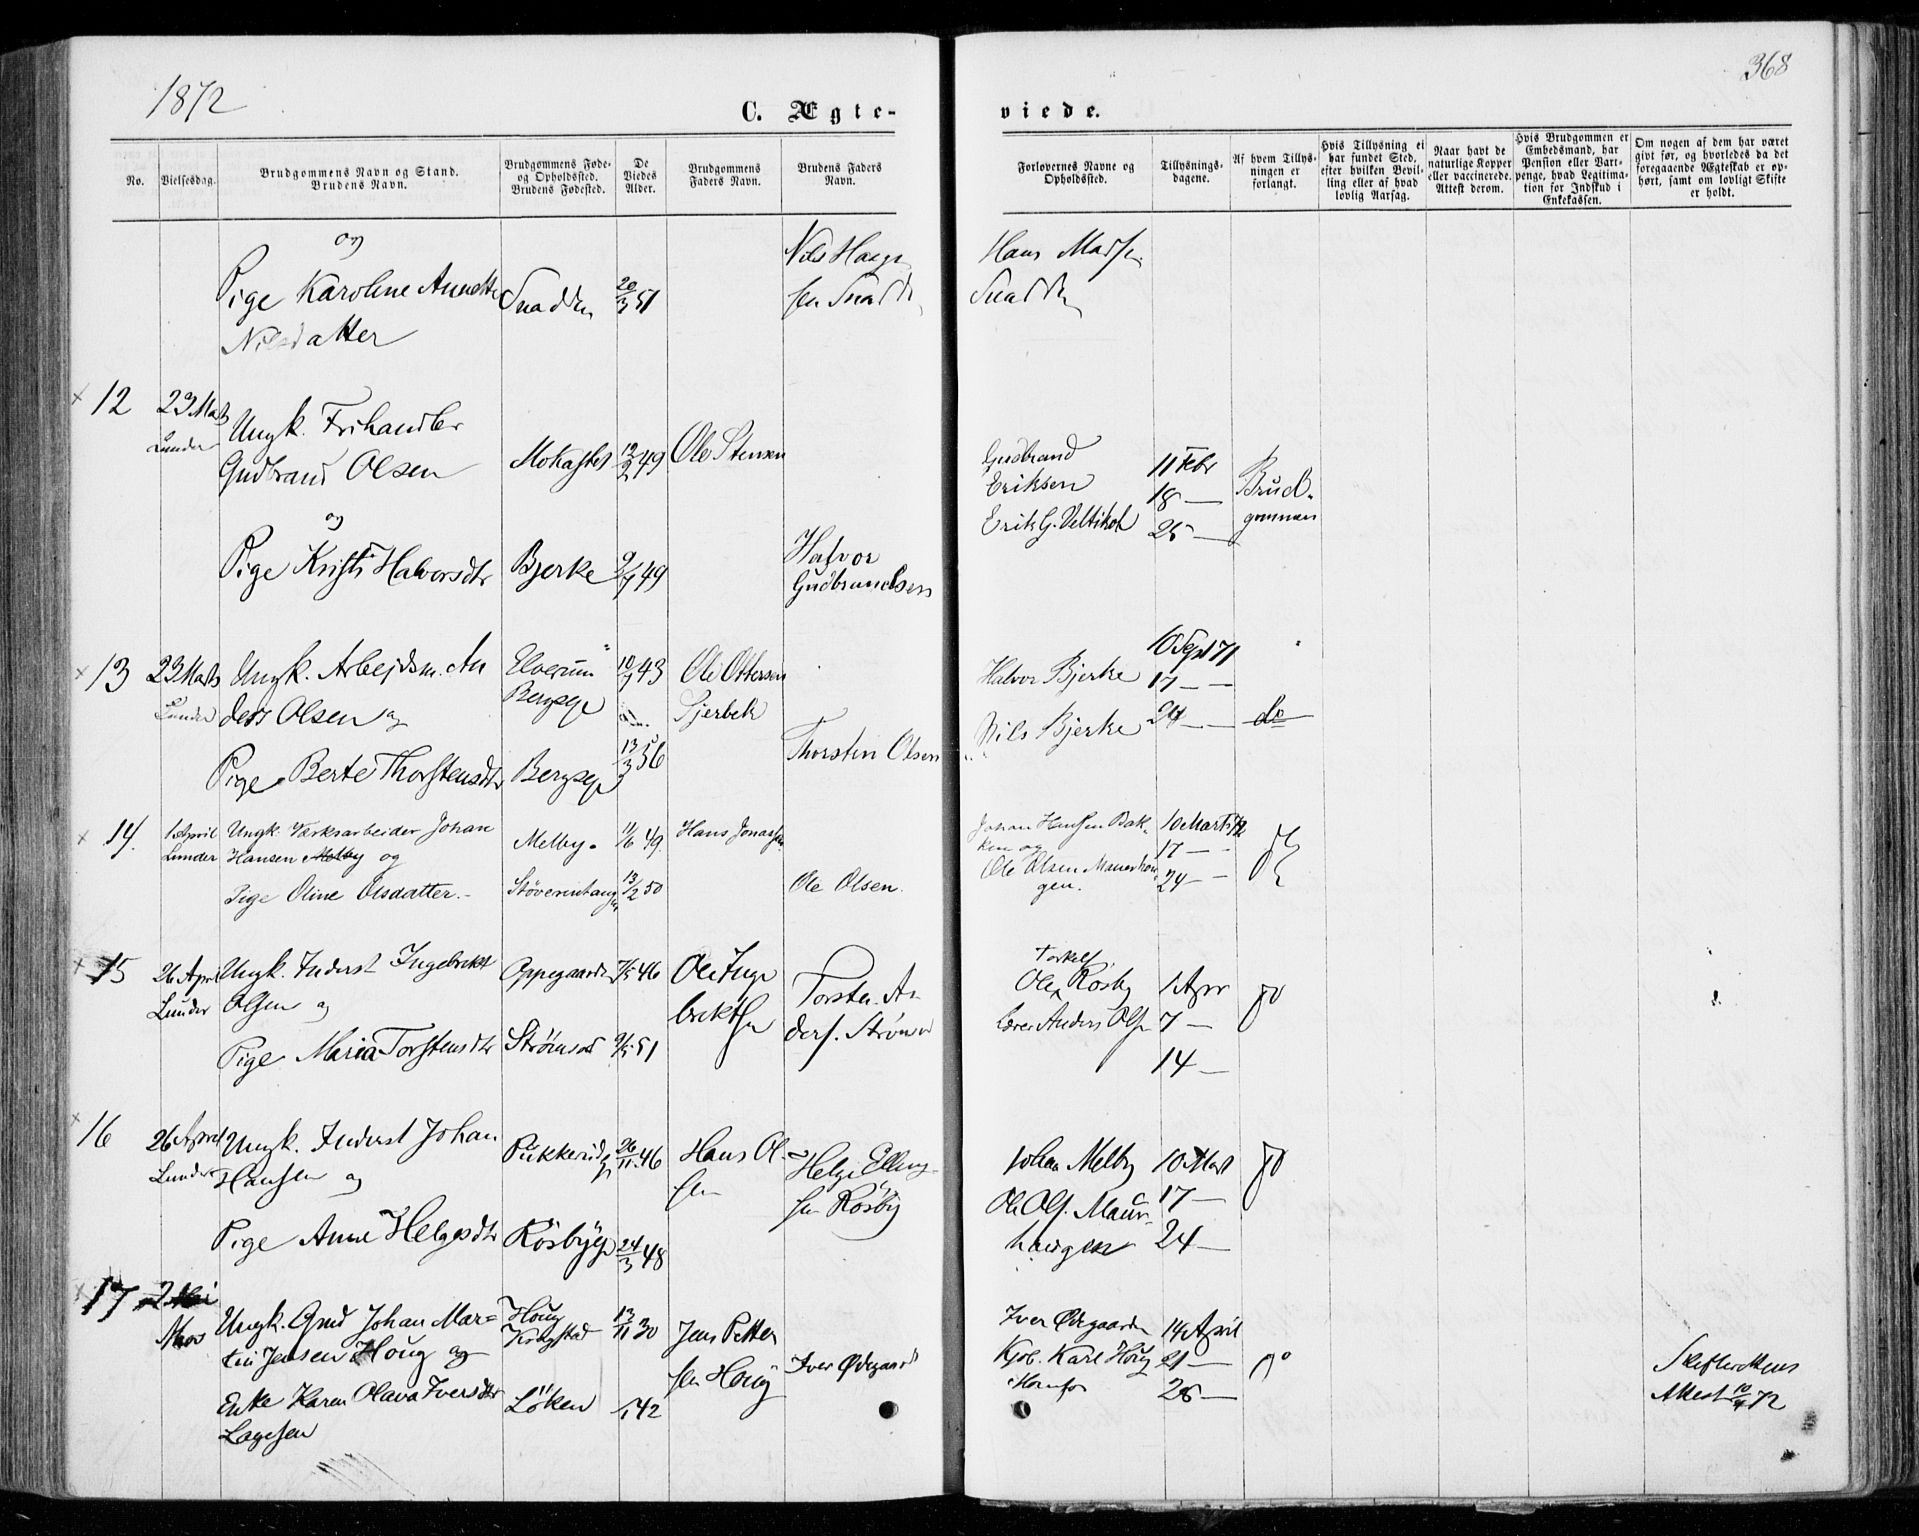 1872
368
C. Ægte-
viede.
No.
Vielsesdag.
Brudgommens Navn og Stand.
Brudens Navn.
Brudgommens Føde-
og Opholdssted.
Brudens Fødested.
De
Viedes
Alder.
Brudgommens
Faders Navn.
Brudens Faders
Navn.
Forlovernes Navne og
Opholdssted.
Tillysnings-
dagene.
Af hvem Tillys-
ningen er
forlangt.
Hvis Tillysning ei
har fundet Sted,
efter hvilken Bevil-
ling eller af hvad
lovlig Aarsag.
Naar havt de
naturlige Kopper
eller vaccinerede.
Attest derom.
Hvis Brudgommen er
Embedsmand, har
Pension eller Vart-
penge, hvad Legitima-
tion for Indskud i
Enkekassen.
Om nogen af dem har været
givt før, og hvorledes da det
foregaaende Ægteskab er op-
hørt, samt om lovligt Skifte
er holdt.
og
Pige Karoline Annette
Nilsdatter
Snadden
20/3 51
Nils Hang
sen Snadd
Hans Mads
Snadden
12
23 Marts
Lunder
Ungk. Frihandler
Gudbrand Olsen
Mokastet
12/2 49
Ole Stensen
Gudbrand
Eriksen
Erik G. Veltikol
11 Febr
18 —
25 —
Brud-
gommen
og
Pige Kristi Halvorsdtr
Bjerke
9/7 49
Halvor
Gudbrandsen
13
23 Marts
Lunder
Ungk. Arbejdsm. An
ders Olsen og
Elverum
Bergseje
10/7 43
Ole Ottersen
Sjerbek
Halvor Bjerke
Nils Bjerke
10 Sept 71
17 —
24 —
do
Pige Berte Thorstensdtr
Bergseje
13/3 56
Thorstin Olsen
14.
1 April
Lunder
Ungk. Værksarbeider Johan
Hansen Melby og
Melby.
11/6 49.
Hans Jonassen
Johan Hansen Bak-
ken og
Ole Olsen Maurhau-
gen.
10 Marts 72
17 —
24 —
Pige Oline Olsdatter.
13/2 50
Ole Olsen.
15
26 April
Lunder
Ungk. Inderst Ingebrekt
Olsen og
Oppegaarde
7/5 46
Ole Inge
brektsen
Torsten An
ders. Strøm
Torkels.
Ole Rosby
Lærer Anders Ols
1 Apr
7 —
14 —
Pige Maria Torstensdtr
Strømsod
9/5 51
16
26 April
Lunder
Ungk. Inderst Johan
Hansen og
Pukkerud
26/11 46
Hans Ol-
sen
Helge Elling
sen Rösby
Johan Melby
Ole Ols. Maur-
haugen
10 Mart
17 —
24 —
Pige Anne Helgesdtr
Rösbyeje
24/3 48
17
2 Mai
Ungk. Gmd Johan Mar-
tin Jensen Houg og
Houg
13/11 30
Jens Petter
sen Houg
Iver Ødegaard
Iver Ødegaarden
Karl Houg
14 April
21 —
28 —
Enke Karen Olava Iversdtr
Lagesen
Löken
42
Skifterettens
Attest 10/4 72